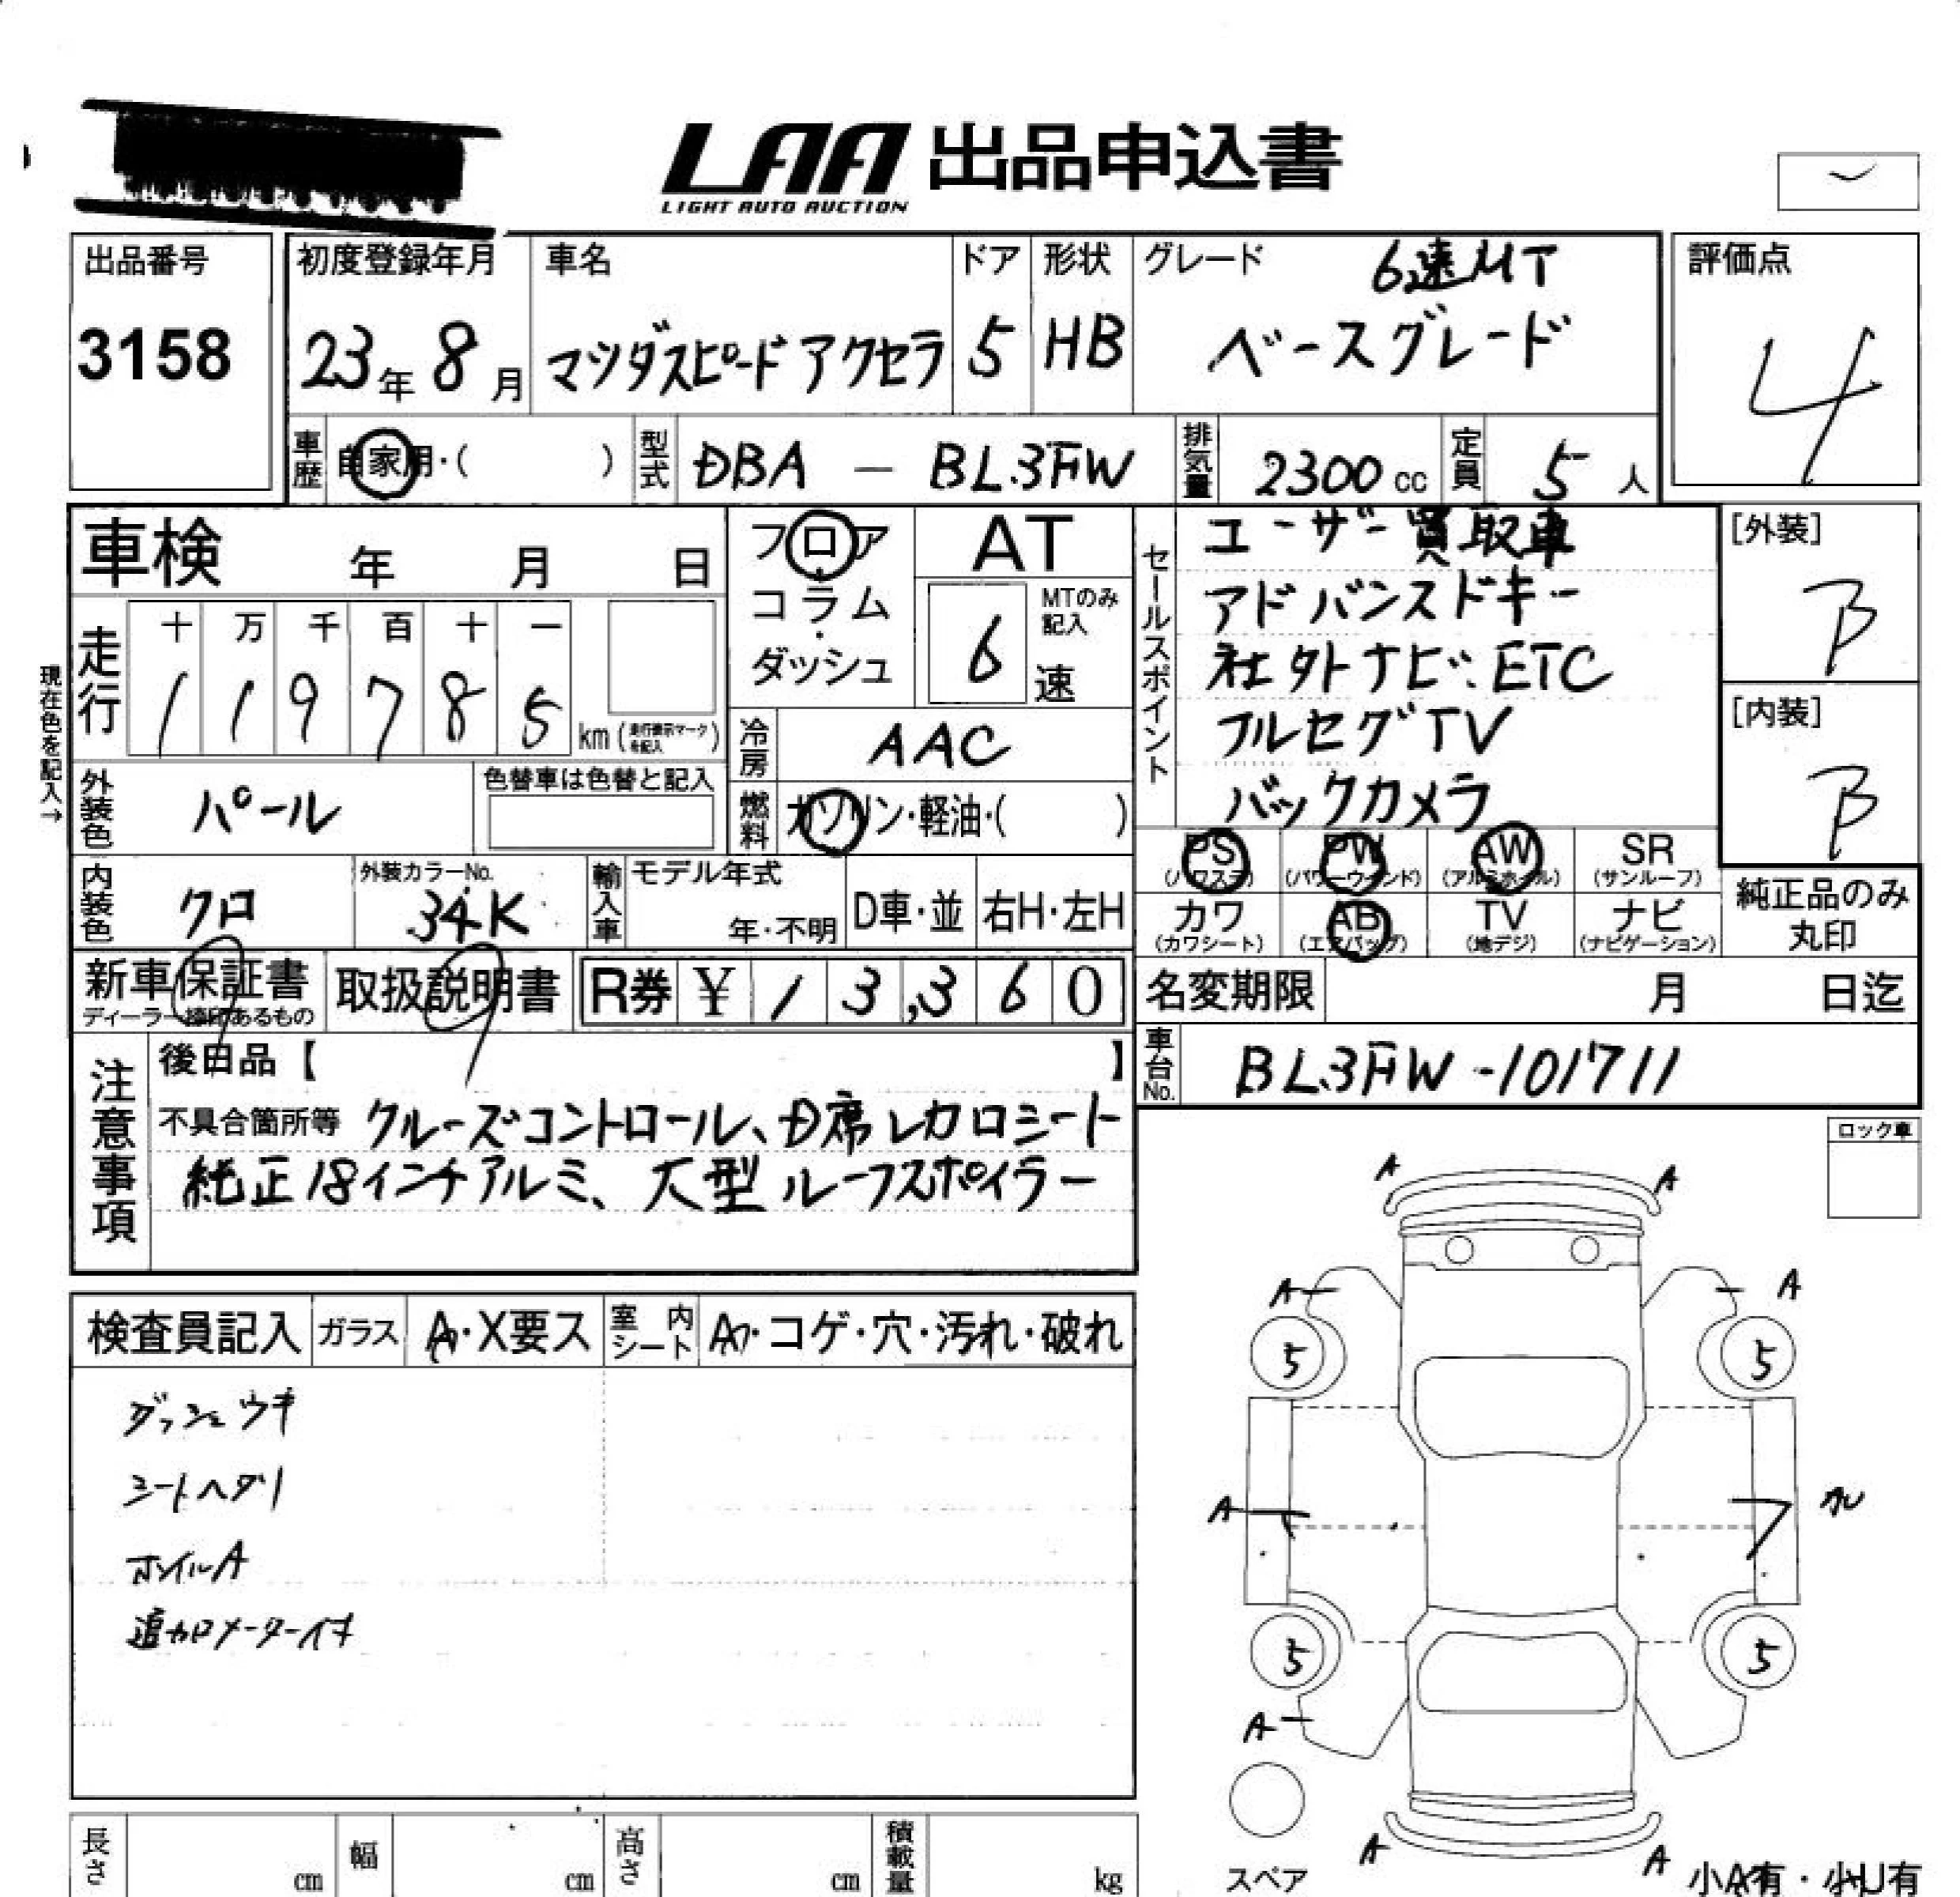 LAA 出品申込書
LIGHT AUTO AUCTION
出品番号
3158
初度登録年月
23年 8月
車名
マツダスピードアクセラ
ドア
5
形状
HB
グレード
6速MT
ベースグレード
評価点
4
車歴 自家用・( )
型式 DBA - BL3FW
排気量 2300 cc
定員 5 人
車検 年 月 日
フロア・コラム・ダッシュ
AT
6 速
MTのみ記入
現在色を記入→
走行 十 万 千 百 十 一
1 1 9 7 8 5 km (走行表示マークを記入)
冷房 AAC
外装色 パール
色替車は色替と記入
燃料 ガソリン・軽油・( )
内装色 クロ
外装カラーNo.
34K
輸入車 モデル年式
年・不明
D車・並
右H・左H
新車保証書
ディーラー捺印あるもの
取扱説明書
R券 ¥ 1 3,3 6 0
セールスポイント
ユーザー買取車
アドバンスドキー
社外ナビ.ETC
フルセグTV
バックカメラ
[外装]
B
[内装]
B
PS (パワステ)
PW (パワーウィンド)
AW (アルミホイル)
SR (サンルーフ)
カワ (カワシート)
AB (エアバッグ)
TV (地デジ)
ナビ (ナビゲーション)
純正品のみ丸印
名変期限 月 日迄
車台No. BL3FW-101711
注意事項
後日品【 】
不具合箇所等 クルーズコントロール、D席レカロシート
純正18インチアルミ、大型ルーフスポイラー
ロック車
検査員記入 ガラス A・X要ス 室内シート A・コゲ・穴・汚れ・破れ
ダッシュウキ
シートヘタリ
ホイルA
追加メーター付キ
A A
A A
5 5
A
5 5
A
A A
スペア
小A有・小U有
長さ cm
幅 cm
高さ cm
積載量 kg